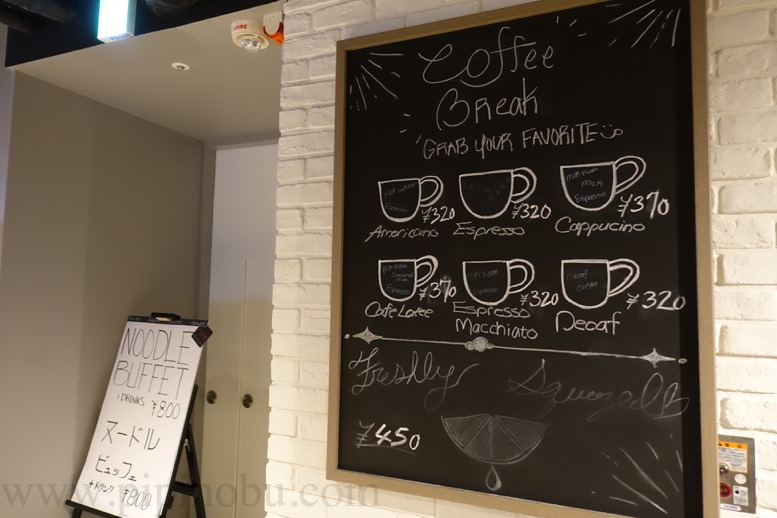 Coffee
Break
GRAB YOUR FAVORITE
Hot water
Espresso
¥320
Americano
¥320
Espresso
Milk Foam
Milk
Espresso
¥370
Cappucino
Milk Foam
Steamed
Milk
Espresso
¥370
Cafe Latte
Milk Foam
Espresso
¥320
Espresso
Macchiato
Decaf
Coffee
¥320
Decaf
Freshly Squeezed
¥450
NOODLE
BUFFET
+DRINKS ¥800
ヌードル
ビュッフェ
+ドリンク ¥800